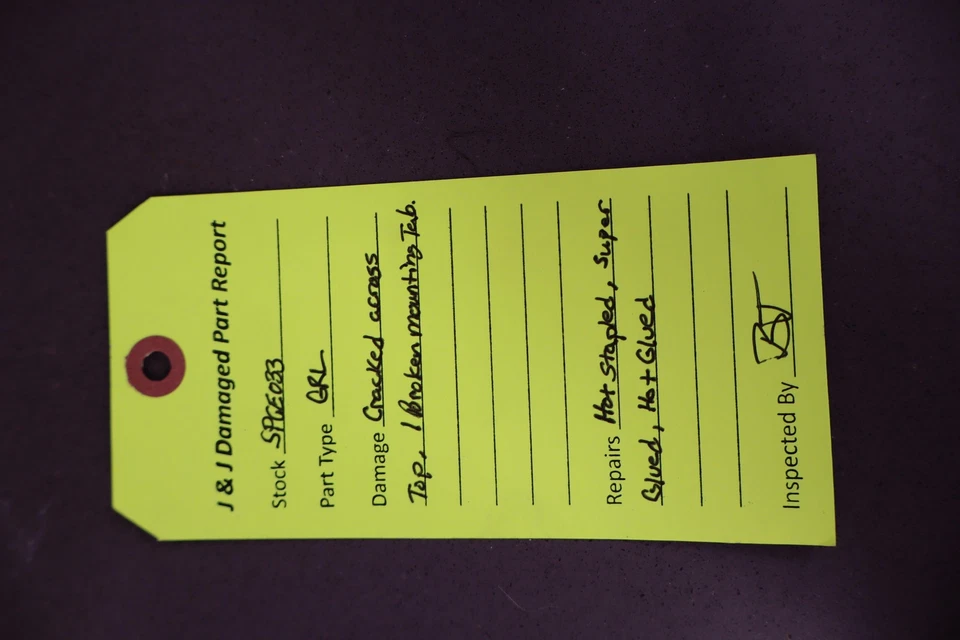 J & J Damaged Part Report
Stock SPGE033
Part Type GRL
Damage Cracked across
Top, 1 Broken mounting Tab.
Repairs Hot Stapled, Super
Glued, Hot Glued
Inspected By